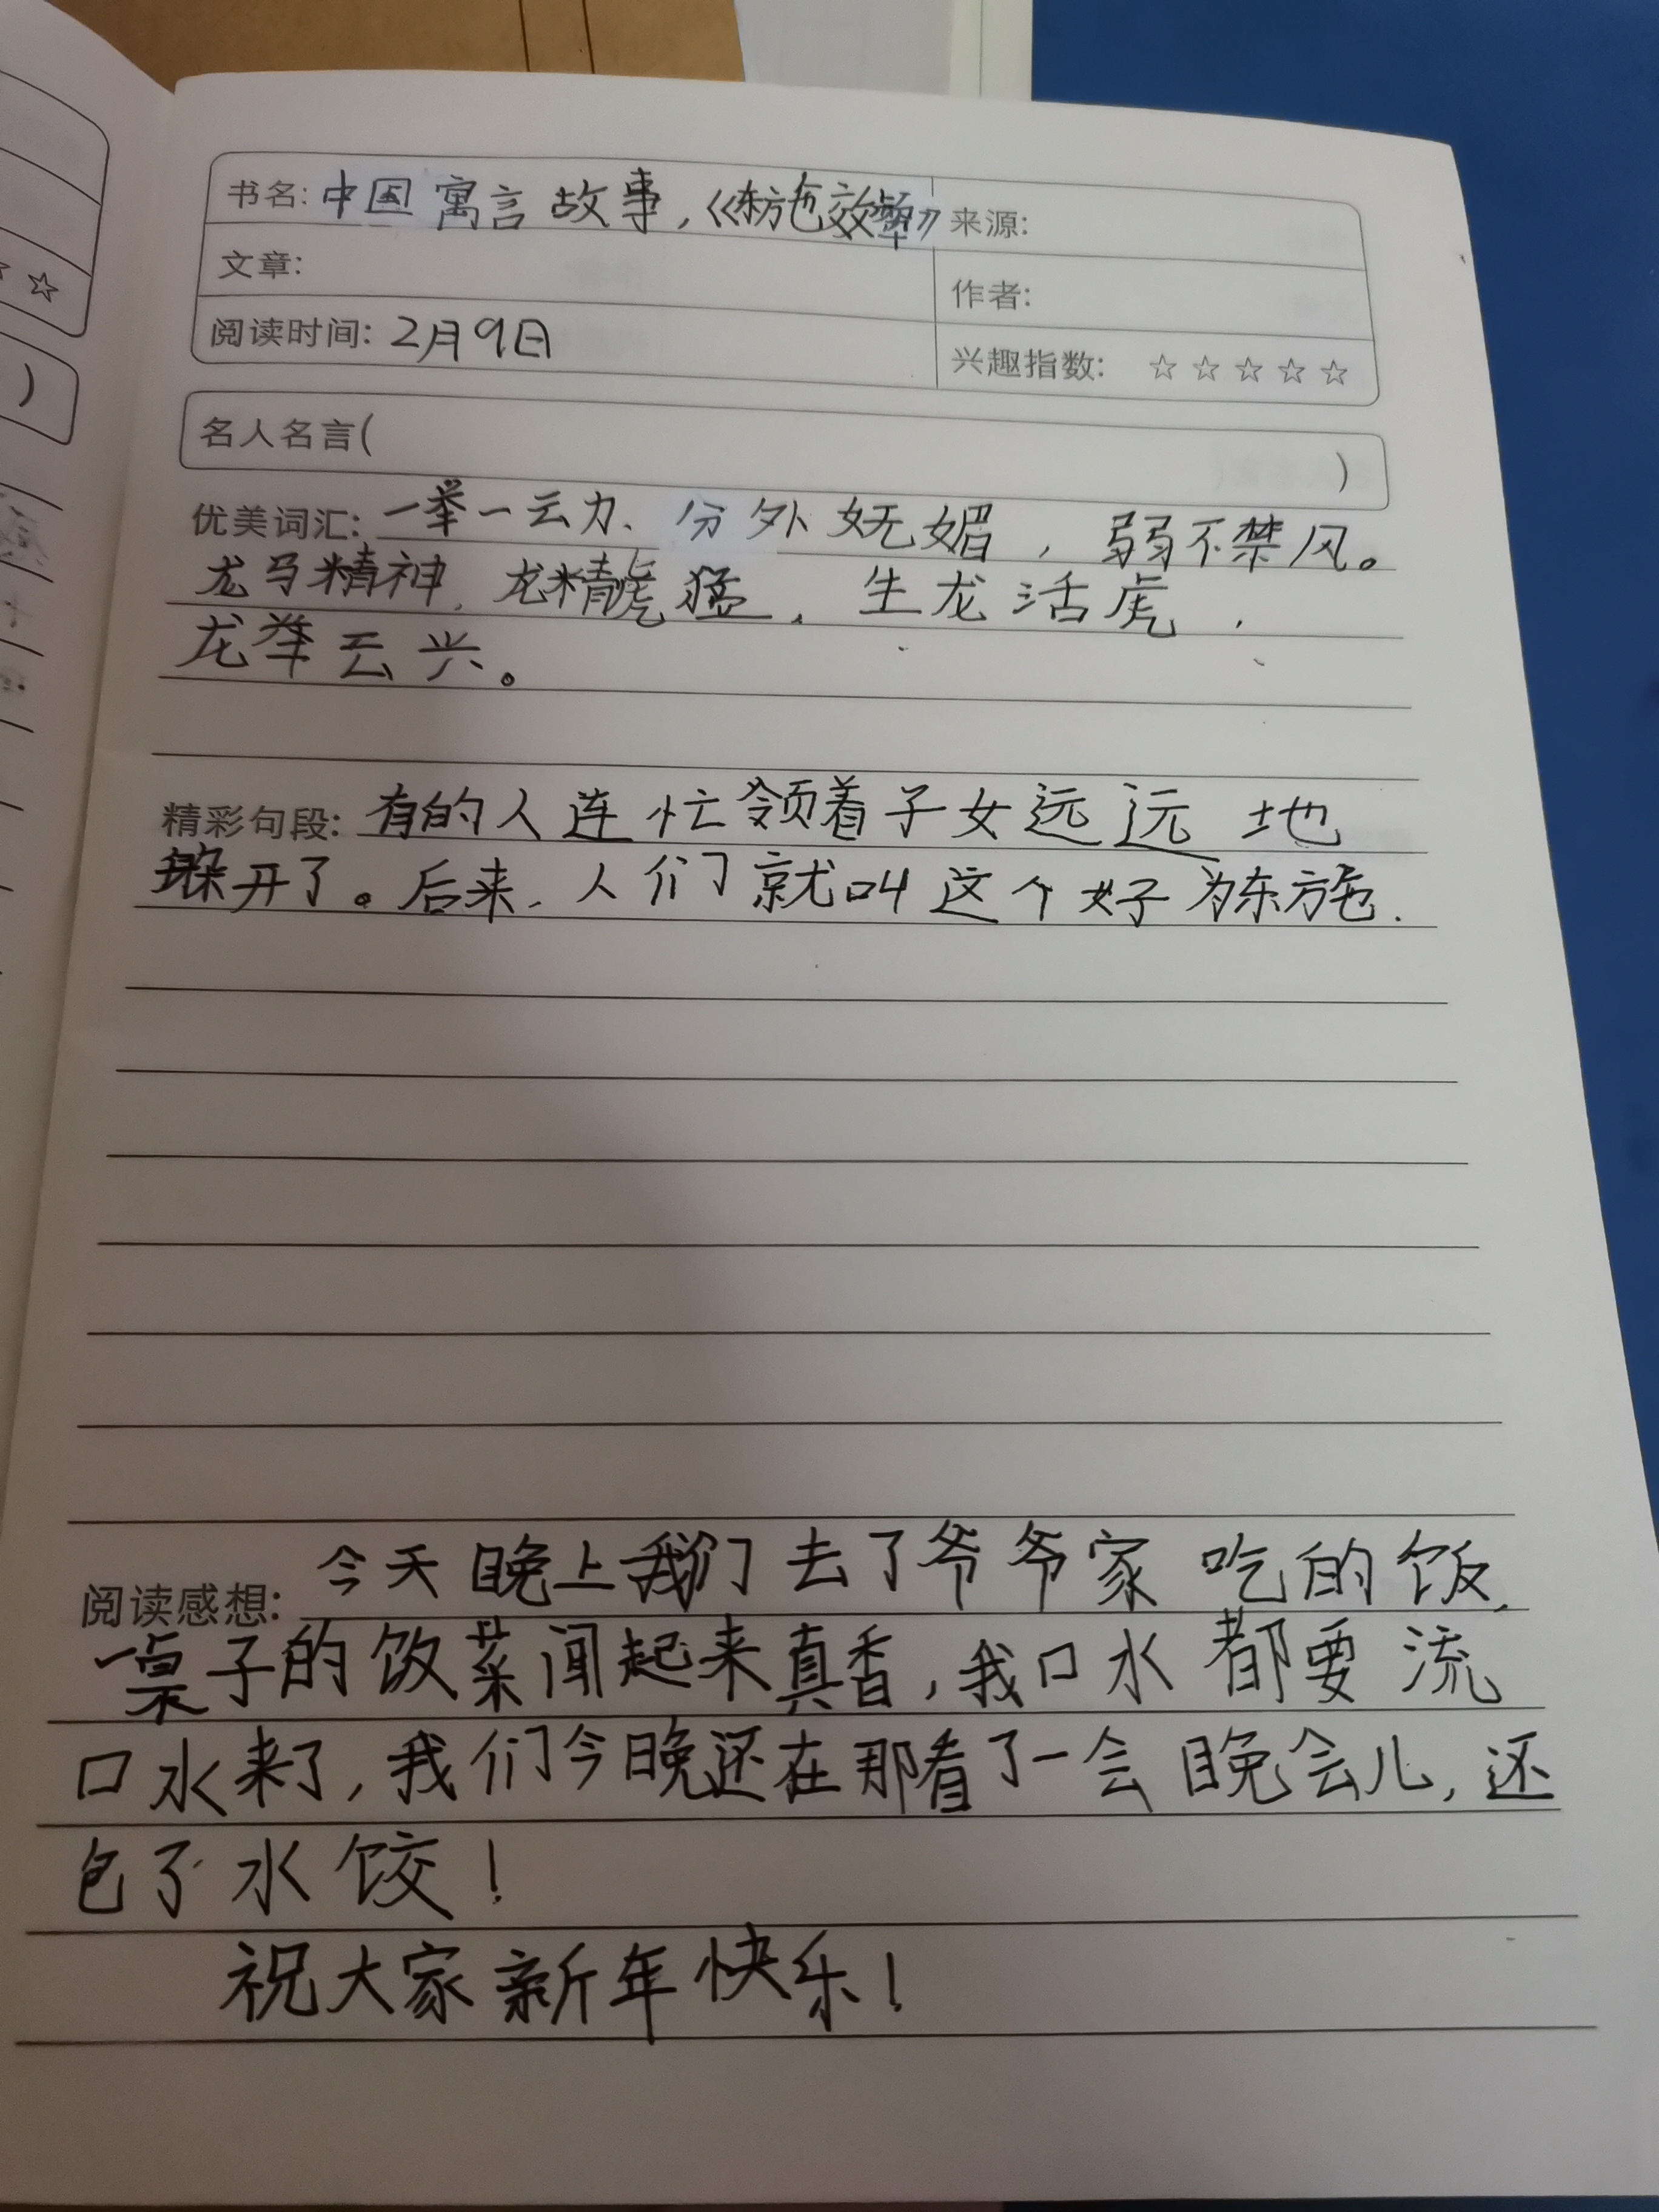 书名: 中国寓言故事,《东施效颦》 来源:
文章:
作者:
阅读时间: 2月9日
兴趣指数: ☆☆☆☆☆
名人名言( )
优美词汇: 一举一云力、分外妩媚,弱不禁风。
龙马精神,龙精虎猛,生龙活虎,
龙举云兴。
精彩句段: 有的人连忙领着子女远远地
躲开了。后来,人们就叫这个女子为东施.
阅读感想: 今天晚上我们去了爷爷家吃的饭,
一桌子的饭菜闻起来真香,我口水都要流
口水来了,我们今晚还在那看了一会晚会儿,还
包了水饺!
祝大家新年快乐!